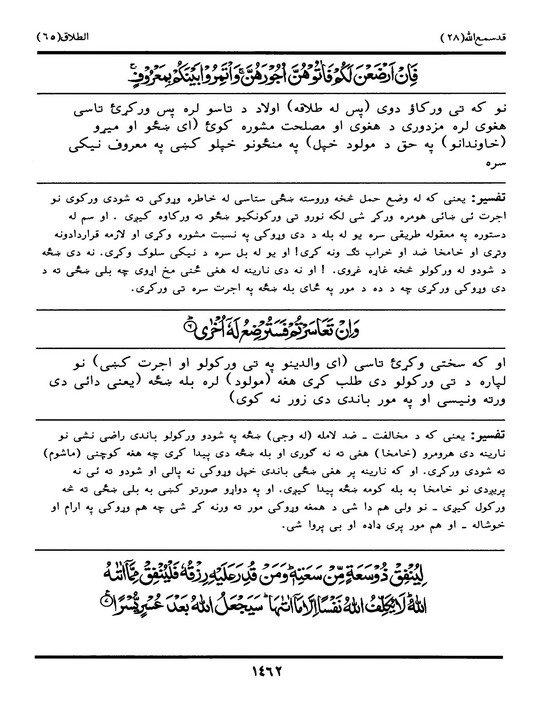 قدسمع الله (٢٨)
الطلاق (٦٥)
فَاِنْ اَرْضَعْنَ لَكُمْ فَاٰتُوْهُنَّ اُجُوْرَهُنَّ ۚ وَاْتَمِرُوْا بَيْنَكُمْ بِمَعْرُوْفٍ ۚ
نو که تی ورکاؤ دوی (پس له طلاقه) اولاد د تاسو لره پس ورکړئ تاسی
هغوی لره مزدوری د هغوی او مصلحت مشوره کوئ (ای ښځو او میړو
(خاوندانو) په حق د مولود خپل) په منځونو خپلو کښی په معروف نیکی
سره
تفسیر: یعنی که له وضع حمل څخه وروسته ښځی ستاسی له خاطره وړوکی ته شودی ورکوی نو
اجرت ئی ښائی هومره ورکړ شی لکه نورو تی ورکونکیو ښځو ته ورکاوه کیږی . او سم له
دستوره په معقوله طریقی سره یو له بله د دی وړوکی په نسبت مشوره وکړی او لازمه قراردادونه
وتړی او خامخا ضد او خراب تګ ونه کړی! او یو له بل سره د نیکی سلوک وکړی. نه دی ښځه
د شودو له ورکولو څخه غاړه غړوی. ! او نه دی نارینه له هغی ځنی مخ اړوی چه بلی ښځی ته د
دی وړوکی ورکړی چه د ده د مور په ځای بله ښځه په اجرت سره تی ورکړی.
وَاِنْ تَعَاسَرْتُمْ فَسَتُرْضِعُ لَهٗۤ اُخْرٰى ۟
او که سختی وکړئ تاسی (ای والدینو په تی ورکولو او اجرت کښی) نو
لپاره د تی ورکولو دی طلب کړی هغه (مولود) لره بله ښځه (یعنی دائی دی
ورته ونیسی او په مور باندی دی زور نه کوی)
تفسیر: یعنی که د مخالفت ـ ضد لامله (له وجی) ښځه په شودو ورکولو باندی راضی نشی نو
نارینه دی هرومرو (خامخا) هغی ته نه ګوری او بله ښځه دی پیدا کړی چه هغه کوچنی (ماشوم)
ته شودی ورکړی. او که نارینه پر هغی ښځی باندی خپل وړوکی نه پالی او شودو ته ئی نه
پریږدی نو خامخا به بله کومه ښځه پیدا کیږی. او په دواړو صورتو کښی به بلی ښځی ته څه
ورکول کیږی ـ نو ولی هم دا شی د همغه وړوکی مور ته ورنه کړ شی چه هم وړوکی په ارام او
خوشاله ـ او هم مور پری ډاډه او بی پروا شی.
لِيُنْفِقْ ذُوْ سَعَةٍ مِّنْ سَعَتِهٖ ؕ وَمَنْ قُدِرَ عَلَيْهِ رِزْقُهٗ فَلْيُنْفِقْ مِمَّاۤ اٰتٰىهُ
اللّٰهُ ؕ لَا يُكَلِّفُ اللّٰهُ نَفْسًا اِلَّا مَاۤ اٰتٰىهَا ؕ سَيَجْعَلُ اللّٰهُ بَعْدَ عُسْرٍ يُّسْرًا ۟
١٤٦٢